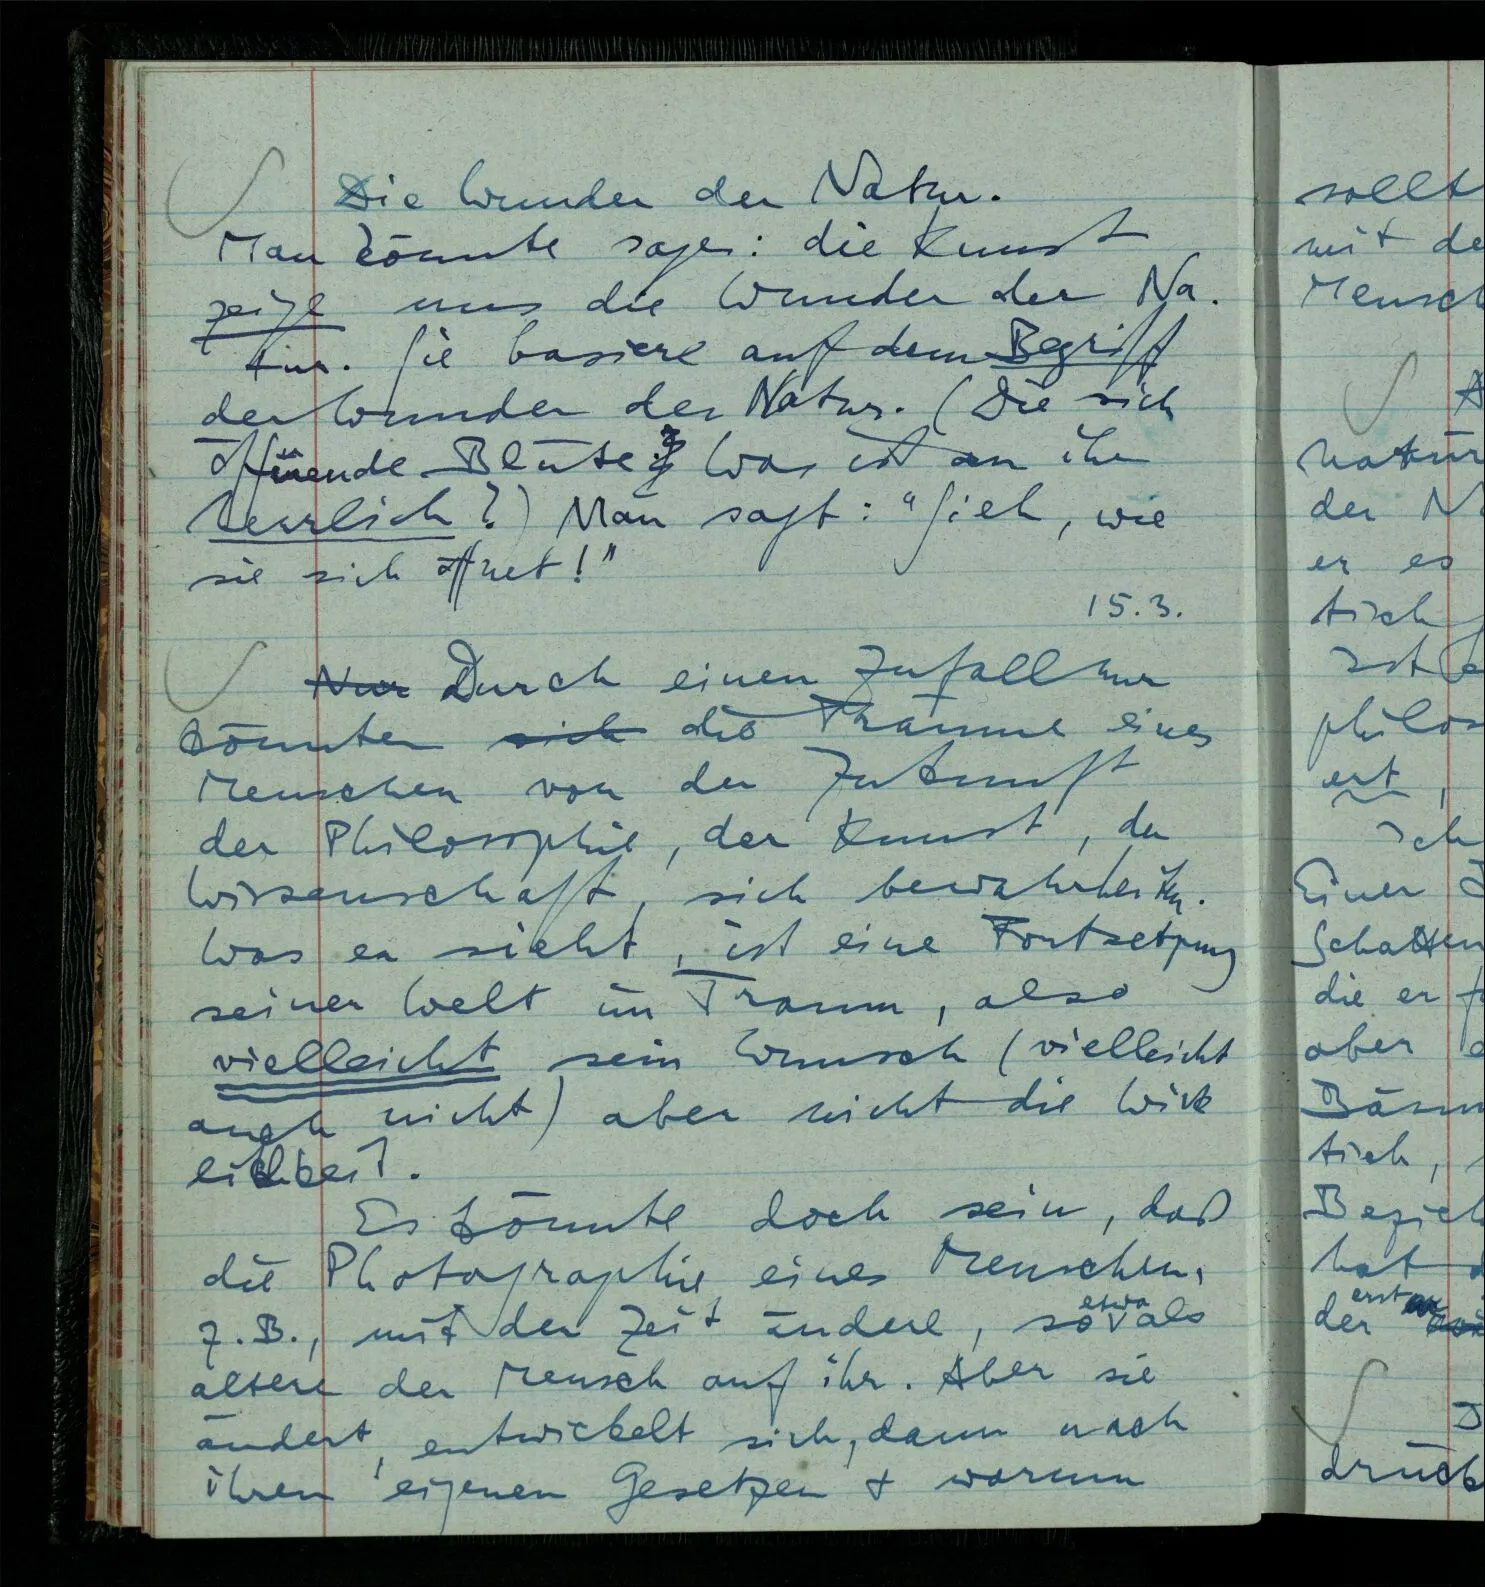 Die Wunder der Natur.
Man könnte sagen: die Kunst
zeige uns die Wunder der Na-
tur. Sie basiere auf dem Begriff
der Wunder der Natur. (Die sich
öffnende Blüte. Was ist an ihr
herrlich?) Man sagt: "Sieh, wie
sie sich öffnet!"
15.3.
Nur Durch einen Zufall nur
könnten sich die Träume eines
Menschen von der Zukunft
der Philosophie, der Kunst, der
Wissenschaft, sich bewahrheiten.
Was er sieht, ist eine Fortsetzung
seiner Welt im Traum, also
vielleicht sein Wunsch (vielleicht
auch nicht) aber nicht die Wirk
lichkeit.
Es könnte doch sein, daß
die Photographie eines Menschen,
z.B., mit der Zeit ändere, so etwa als
altere der Mensch auf ihr. Aber sie
ändert, entwickelt sich, dann nach
ihren eigenen Gesetzen + warum
sollt
mit de
Mensch
natür
der N
er es
tisch
ist
philos
ert,
ich
Einer
Schatten
die er f
aber
Bäum
tisch,
Bezieh
hat d
der erst
drück